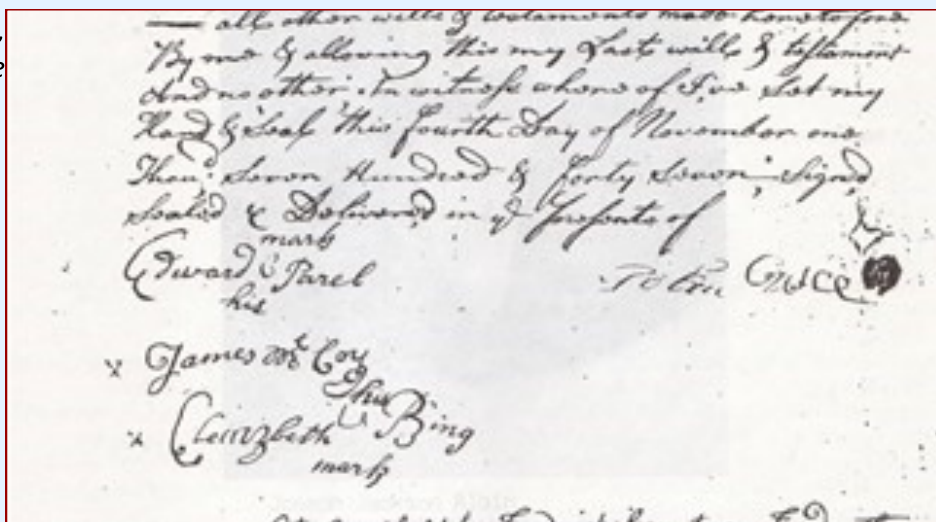 all other wills & testaments made heretofore
By me & allowing this my Last will & testament
And no other. In witness where of I've Set my
Hand & Seal this fourth Day of November one
Thou: Seven Hundred & forty Seven; Signed
Sealed & Delivered in ye presents of
mark
Edward Parel
his
John
James Mc Coy
his
Bing
mark